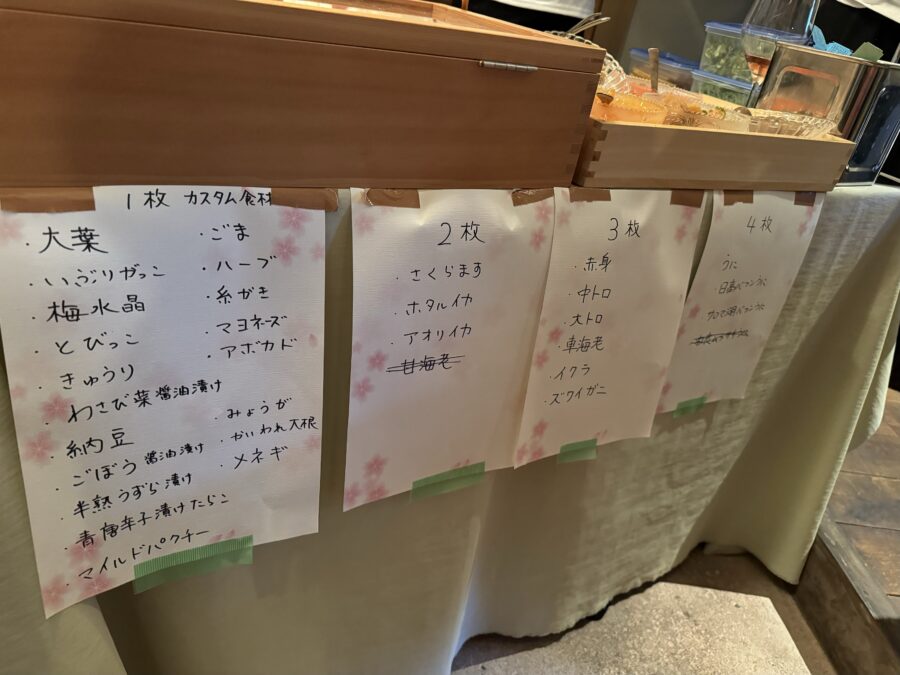 1枚 カスタム食材
・大葉
・いぶりがっこ
・梅水晶
・とびっこ
・きゅうり
・わさび菜醤油漬け
・納豆
・ごぼう醤油漬け
・半熟うずら漬け
・青唐辛子漬けたらこ
・マイルドパクチー
・ごま
・ハーブ
・糸がき
・マヨネーズ
・アボカド
・みょうが
・かいわれ大根
・メネギ
2枚
・さくらます
・ホタルイカ
・アオリイカ
・甘海老
3枚
・赤身
・中トロ
・大トロ
・車海老
・イクラ
・ズワイガニ
4枚
うに
・日高バフンうに